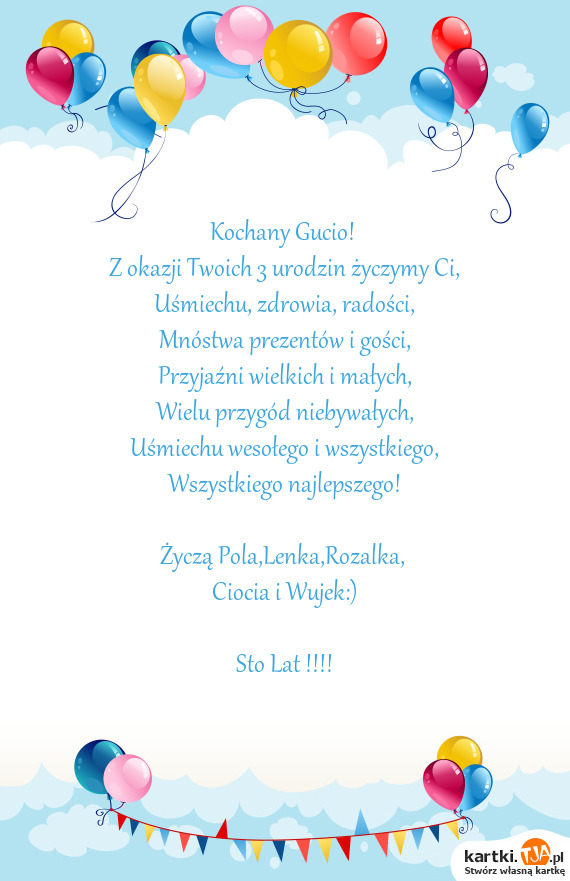 Kochany Gucio!
Z okazji Twoich 3 urodzin życzymy Ci,
Uśmiechu, zdrowia, radości,
Mnóstwa prezentów i gości,
Przyjaźni wielkich i małych,
Wielu przygód niebywałych,
Uśmiechu wesołego i wszystkiego,
Wszystkiego najlepszego!
Życzą Pola,Lenka,Rozalka,
Ciocia i Wujek:)
Sto Lat !!!!
kartki.TJA.pl
Stwórz własną kartkę